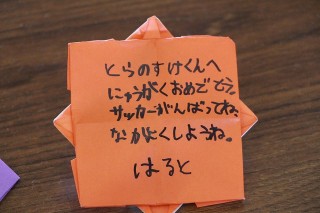 とらのすけくんへ
にゅうがくおめでとう。
サッカーがんばってね。
なかよくしようね。
はると